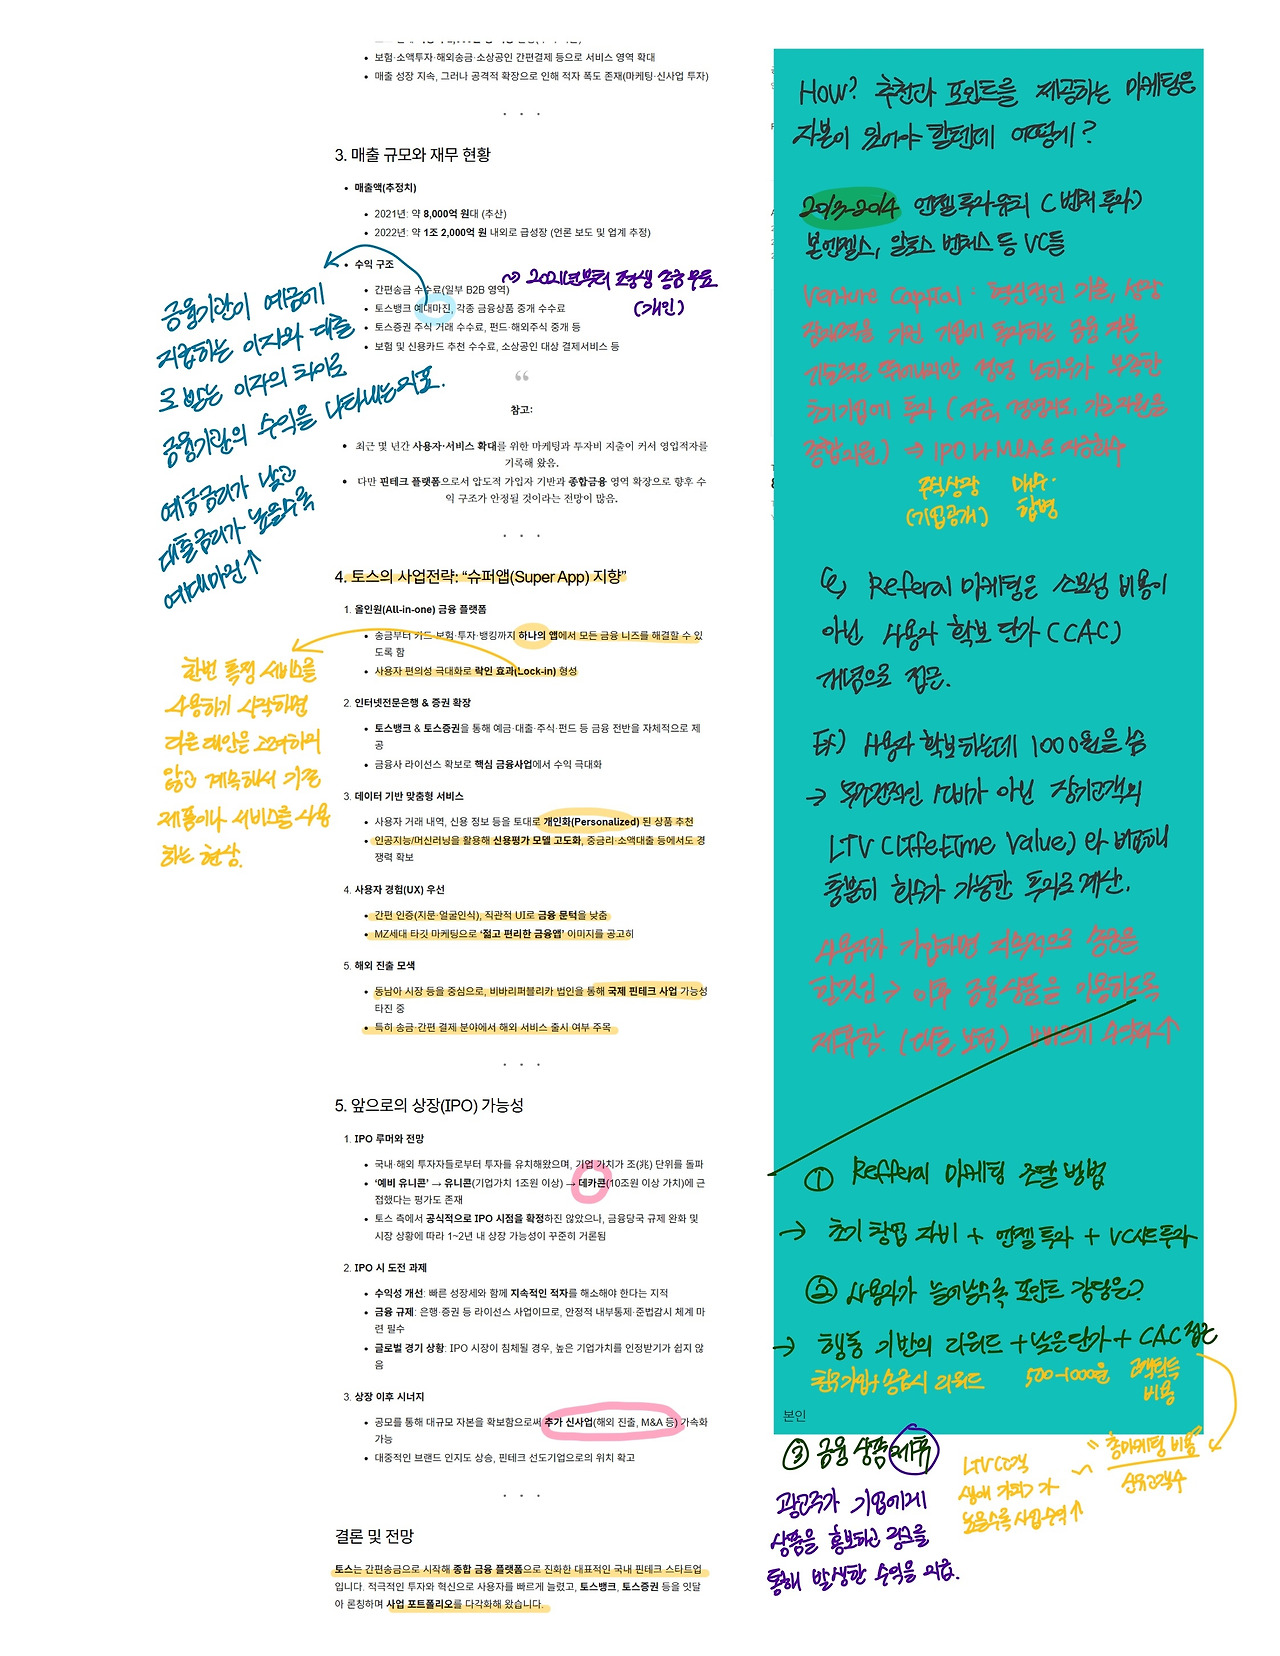 • 보험·소액투자·해외송금·소상공인 간편결제 등으로 서비스 영역 확대
• 매출 성장 지속, 그러나 공격적 확장으로 인해 적자 폭도 존재(마케팅·신사업 투자)
3. 매출 규모와 재무 현황
• 매출액(추정치)
• 2021년: 약 8,000억 원대 (추산)
• 2022년: 약 1조 2,000억 원 내외로 급성장 (언론 보도 및 업계 추정)
• 수익 구조
• 간편송금 수수료(일부 B2B 영역)
• 토스뱅크 예대마진, 각종 금융상품 중개 수수료
• 토스증권 주식 거래 수수료, 펀드·해외주식 중개 등
• 보험 및 신용카드 추천 수수료, 소상공인 대상 결제서비스 등
~> 2021년부터 평생 송금 무료
(개인)
“
참고:
• 최근 몇 년간 사용자·서비스 확대를 위한 마케팅과 투자비 지출이 커서 영업적자를
기록해 왔음.
• 다만 핀테크 플랫폼으로서 압도적 가입자 기반과 종합금융 영역 확장으로 향후 수
익 구조가 안정될 것이라는 전망이 많음.
금융기관이 예금에
지급하는 이자와 대출
로 받는 이자의 차이로
금융기관의 수익을 나타내는 지표.
예금금리가 낮고
대출금리가 높을수록
예대마진↑
4. 토스의 사업전략: “슈퍼앱(Super App) 지향”
1. 올인원(All-in-one) 금융 플랫폼
• 송금부터 카드·보험·투자·뱅킹까지 하나의 앱에서 모든 금융 니즈를 해결할 수 있
도록 함
• 사용자 편의성 극대화로 락인 효과(Lock-in) 형성
2. 인터넷전문은행 & 증권 확장
• 토스뱅크 & 토스증권을 통해 예금·대출·주식·펀드 등 금융 전반을 자체적으로 제
공
• 금융사 라이선스 확보로 핵심 금융사업에서 수익 극대화
3. 데이터 기반 맞춤형 서비스
• 사용자 거래 내역, 신용 정보 등을 토대로 개인화(Personalized) 된 상품 추천
• 인공지능/머신러닝을 활용해 신용평가 모델 고도화, 중금리·소액대출 등에서도 경
쟁력 확보
4. 사용자 경험(UX) 우선
• 간편 인증(지문·얼굴인식), 직관적 UI로 금융 문턱을 낮춤
• MZ세대 타깃 마케팅으로 ‘젊고 편리한 금융앱’ 이미지를 공고히
5. 해외 진출 모색
• 동남아 시장 등을 중심으로, 비바리퍼블리카 법인을 통해 국제 핀테크 사업 가능성
타진 중
• 특히 송금·간편 결제 분야에서 해외 서비스 출시 여부 주목
한번 특정 서비스를
사용하기 시작하면
다른 대안을 고려하지
않고 계속해서 기존
제품이나 서비스를 사용
하는 현상.
5. 앞으로의 상장(IPO) 가능성
1. IPO 루머와 전망
• 국내·해외 투자자들로부터 투자를 유치해왔으며, 기업 가치가 조(兆) 단위를 돌파
• ‘예비 유니콘’ → 유니콘(기업가치 1조원 이상) → 데카콘(10조원 이상 가치)에 근
접했다는 평가도 존재
• 토스 측에서 공식적으로 IPO 시점을 확정하진 않았으나, 금융당국 규제 완화 및
시장 상황에 따라 1~2년 내 상장 가능성이 꾸준히 거론됨
2. IPO 시 도전 과제
• 수익성 개선: 빠른 성장세와 함께 지속적인 적자를 해소해야 한다는 지적
• 금융 규제: 은행·증권 등 라이선스 사업이므로, 안정적 내부통제·준법감시 체계 마
련 필수
• 글로벌 경기 상황: IPO 시장이 침체될 경우, 높은 기업가치를 인정받기가 쉽지 않
음
3. 상장 이후 시너지
• 공모를 통해 대규모 자본을 확보함으로써 추가 신사업(해외 진출, M&A 등) 가속화
가능
• 대중적인 브랜드 인지도 상승, 핀테크 선도기업으로의 위치 확고
결론 및 전망
토스는 간편송금으로 시작해 종합 금융 플랫폼으로 진화한 대표적인 국내 핀테크 스타트업
입니다. 적극적인 투자와 혁신으로 사용자를 빠르게 늘렸고, 토스뱅크, 토스증권 등을 잇달
아 론칭하며 사업 포트폴리오를 다각화해 왔습니다.
How? 추천과 포인트를 제공하는 마케팅은
자본이 있어야 할텐데 어떻게?
2013-2014 엔젤 투자 유치 (벤처 투자)
본엔젤스, 알토스 벤처스 등 VC들
Venture Capital : 혁신적인 기술, 성장
잠재력을 가진 기업에 투자하는 금융 자본
기술력은 뛰어나지만 경영 노하우가 부족한
초기기업에 투자 (자금, 경영지도, 기술지원을
종합지원) ⇒ IPO나 M&A로 자금회수
주식상장
(기업공개)
매수·
합병
↳ Referal 마케팅은 소모성 비용이
아닌 사용자 확보 단가 (CAC)
개념으로 접근.
Ex) 사용자 확보하는데 1000원을 씀
→ 무조건적인 소비가 아닌 장기고객의
LTV (LifeTime Value) 와 비교하니
충분히 회수가 가능한 투자로 계산.
사용자가 가입하면 지속적으로 송금을
할것임 → 이후 금융상품을 이용하도록
제휴함. (대출 보험)
① Refferal 마케팅 조달 방법
→ 초기 창업 자비 + 엔젤 투자 + VC시드투자
② 사용자가 늘어날수록 포인트 감당은?
→ 행동 기반의 리워드 + 낮은단가 + CAC 접근
친구가입+송금시 리워드
500-1000원
고객획득
비용
본인
③ 금융 상품 제휴
광고주가 기업에게
상품을 홍보하고 링크를
통해 발생한 수익을 지급.
LTV (고객
생애 가치)가
높을수록 사업수익↑
“총마케팅 비용”
신규고객수